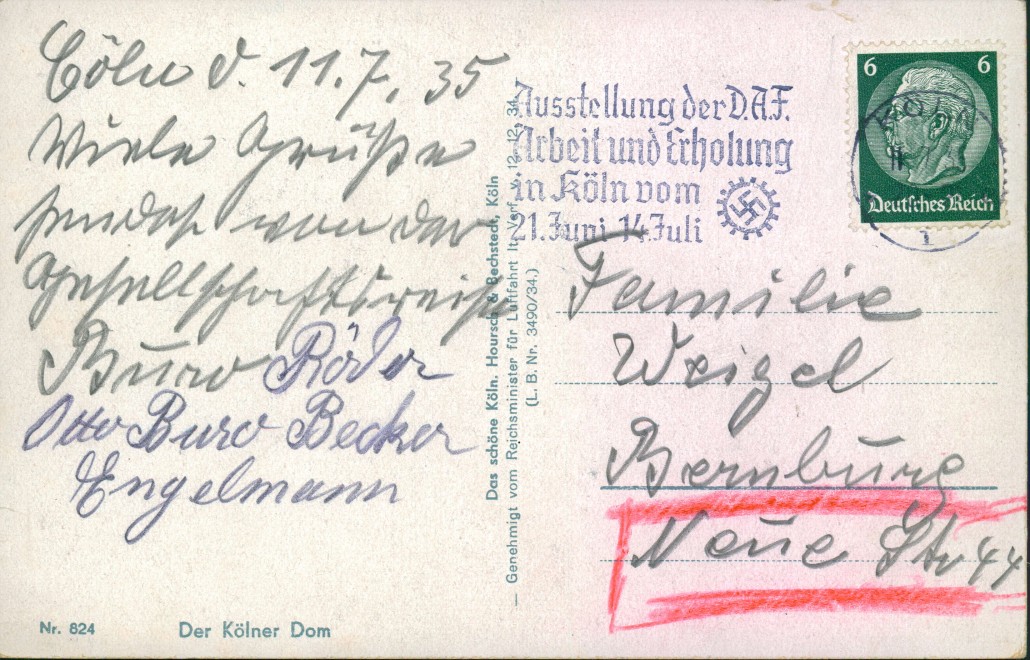 Cöln d. 11.7.35
Viele Grüße
sendet von der
Gesellschaftsreise
Buro Röder
Otto Buro Becker
Engelmann
Nr. 824 Der Kölner Dom
Das schöne Köln. Hoursch & Bechstedt, Köln
— Genehmigt vom Reichsminister für Luftfahrt lt. Verf. v. 12. 12. 34.
(L. B. Nr. 3490/34.)
Ausstellung der D.A.F.
Arbeit und Erholung
in Köln vom
21. Juni - 14. Juli
6 6
Deutsches Reich
KÖL
1
Familie
Weigel
Bernburg
Neue Str 44